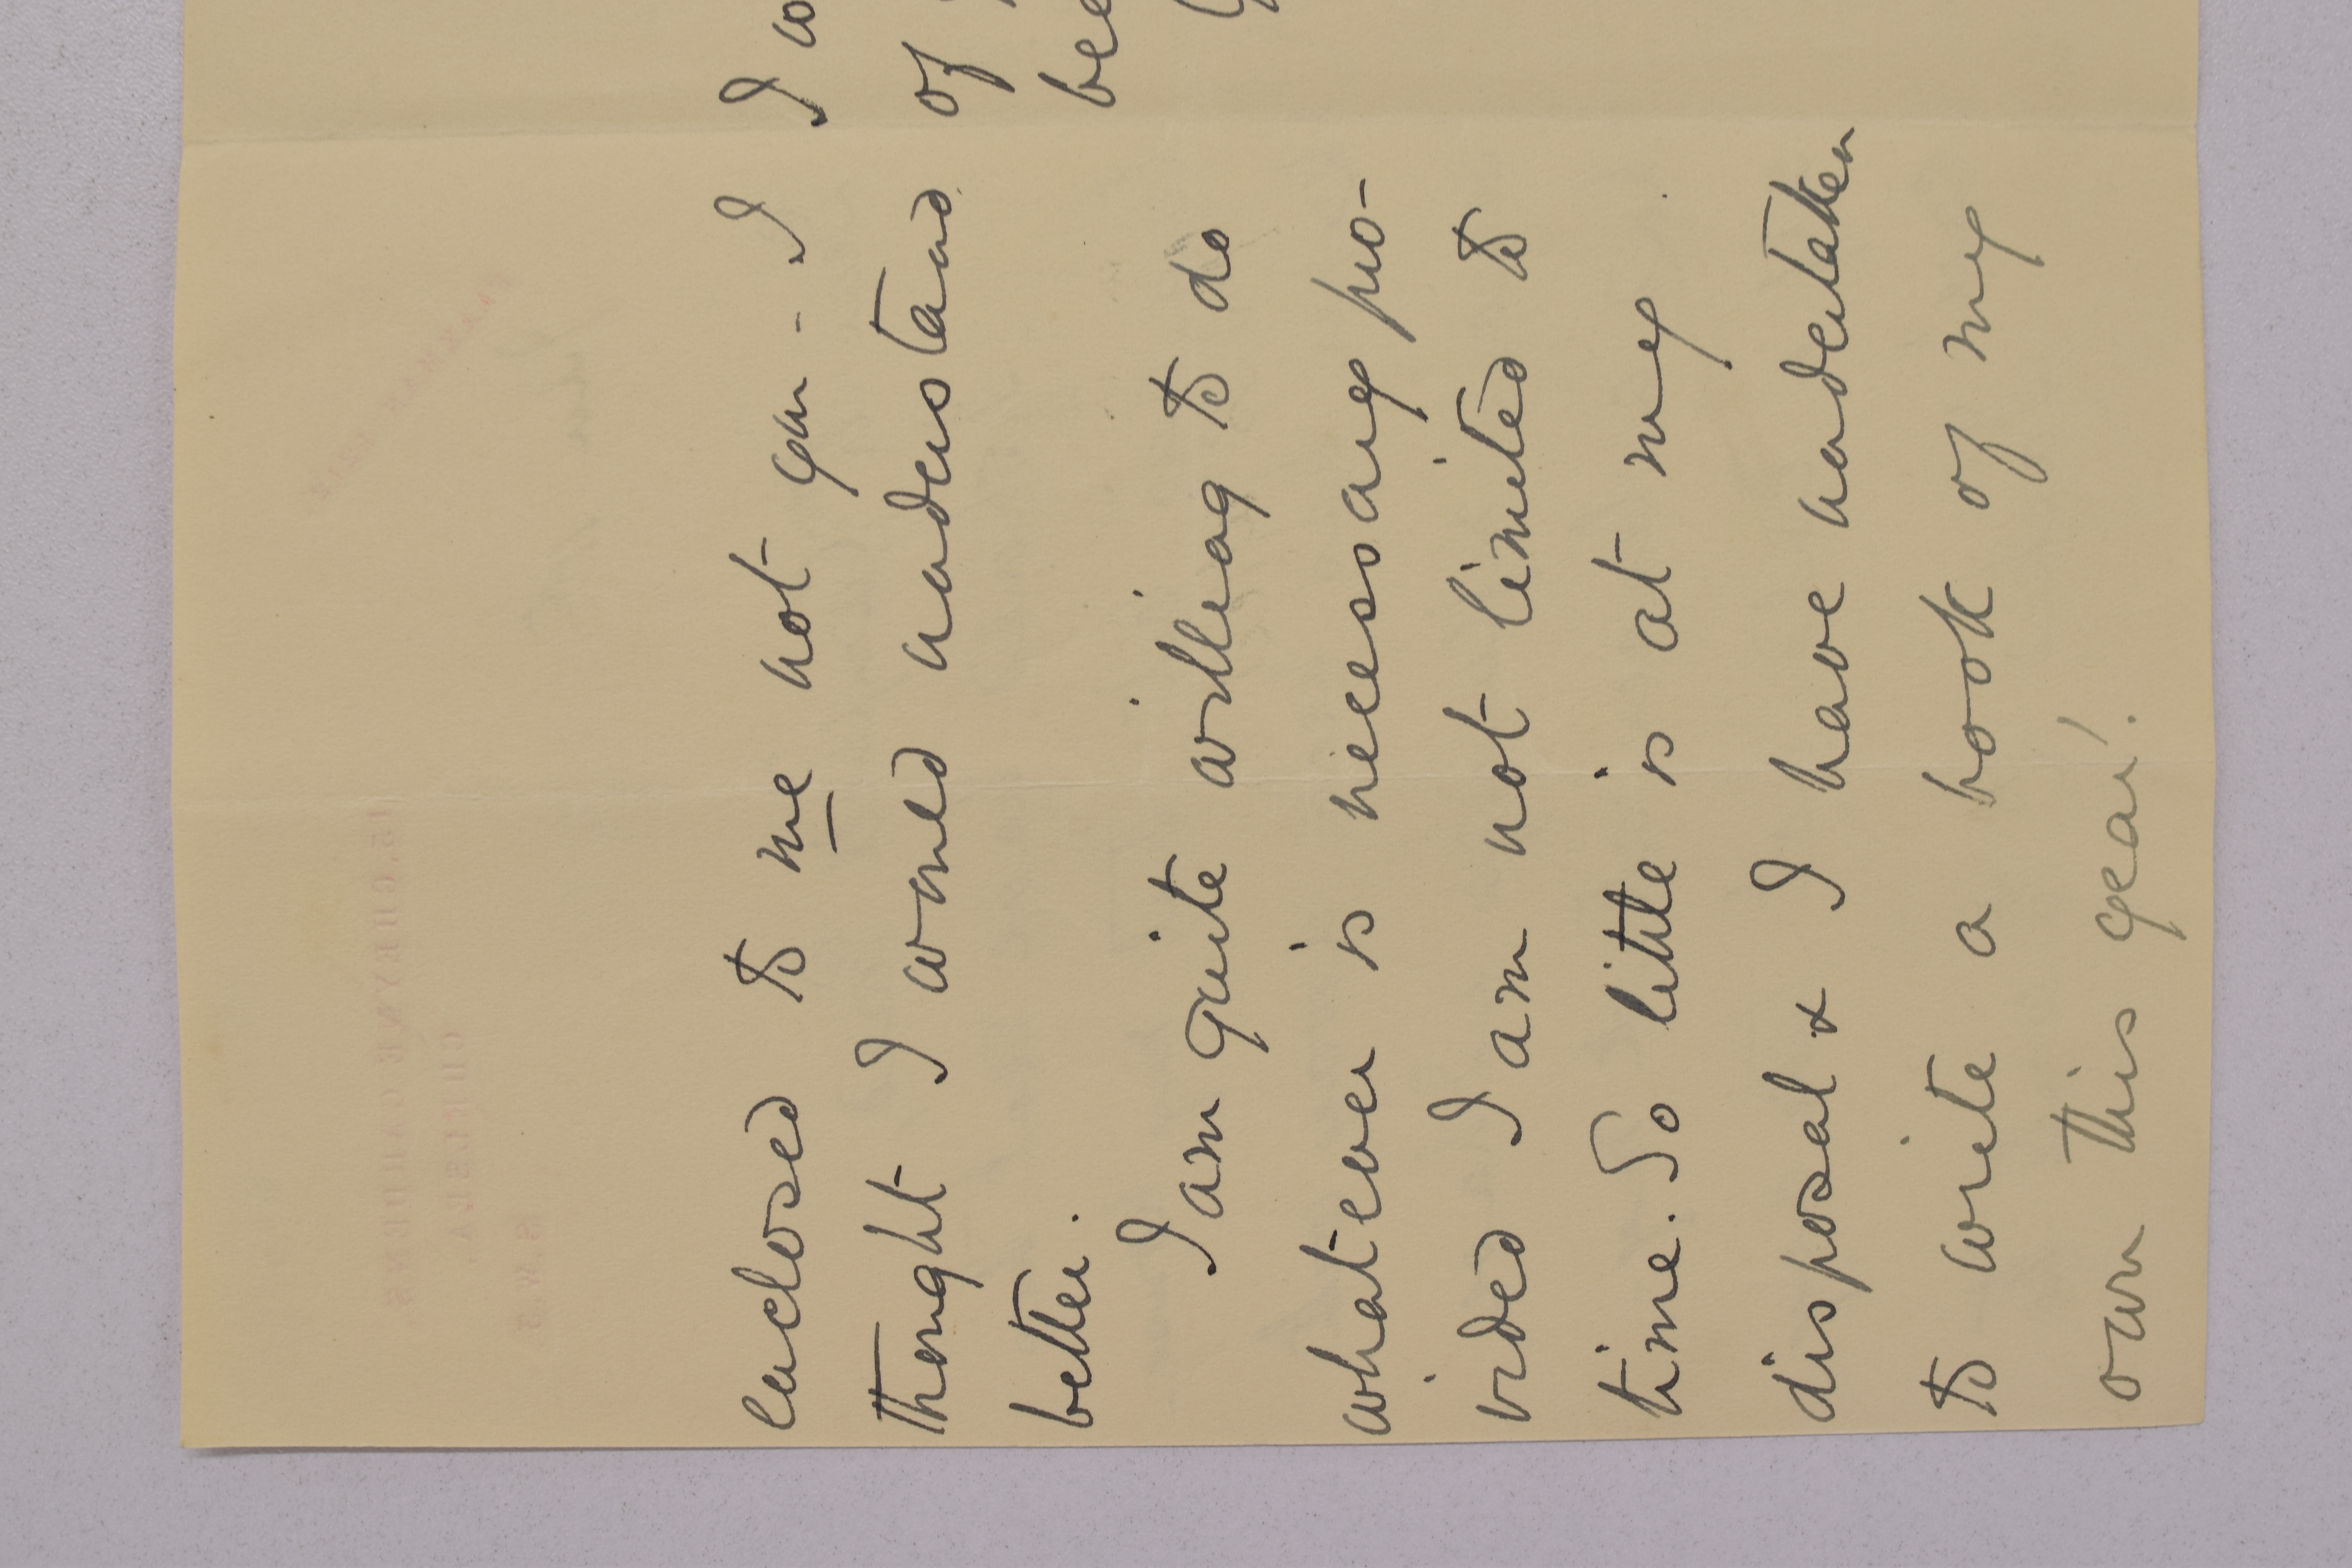 enclosed to me not you - I
thought I would understand
better.
I am quite willing to do
whatever is necessary pro-
vided I am not limited to
time. So little is at my
disposal & I have undertaken
to write a book of my
own this year!
I
of
be
15, CHEYNE GARDENS,
CHELSEA,
S.W.3